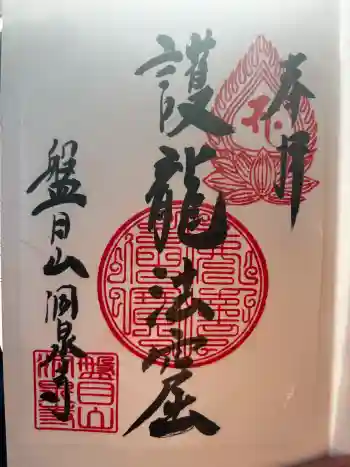 奉拝
護龍法窟
盤日山洞泉寺
盤日山